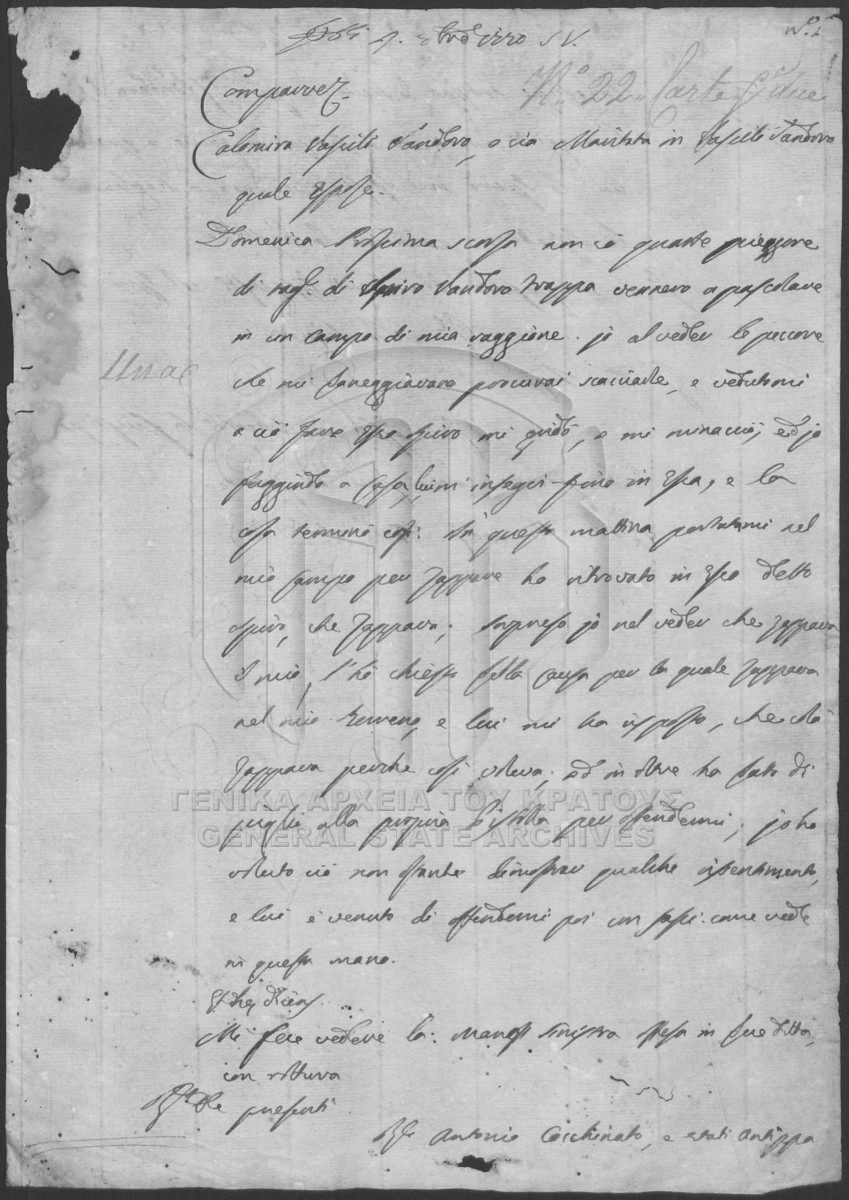 N.º 1
S.V.
Comparve
N.º 22 Carte
Calomira Vassili Vandoro, o sia Maritata in Vassili Vandoro
quale espose.
Domenica Prossima scorsa non so quante piegore
di rag.e di Spiro Vandoro Frappa vennero a pascolare
in un campo di mia raggione. jo al veder le peccore
che mi daneggiavano procurai scacciarle, e vedutomi
a ciò fare esso Spiro mi gridò, e mi minacciò, ed jo
fuggindo a Casa, lui mi inseguì fino in essa, e la
cosa terminò così. In questa mattina portatami nel
mio campo per zappare ho ritrovato in esso detto
Spiro, che zappava; sorpreso jo nel veder che zappava
il mio, l'hò chiesto della causa per la quale zappava
nel mio terreno, e lui mi ha risposto, che colà
zappava perche così voleva; ed in oltre ha dato di
piglio alla propria Pistolla per offendermi; jo ho
voluto ciò non ostante dimostrar qualche risentimento,
e lui è venuto di offendermi poi con sassi: come vede
in questa mano.
Mi fece vedere la mano sinistra offesa in due ditta,
con rottura
presenti
Antonio Cocchinato, e Stati Antippa
ΓΕΝΙΚΑ ΑΡΧΕΙΑ ΤΟΥ ΚΡΑΤΟΥΣ
GENERAL STATE ARCHIVES